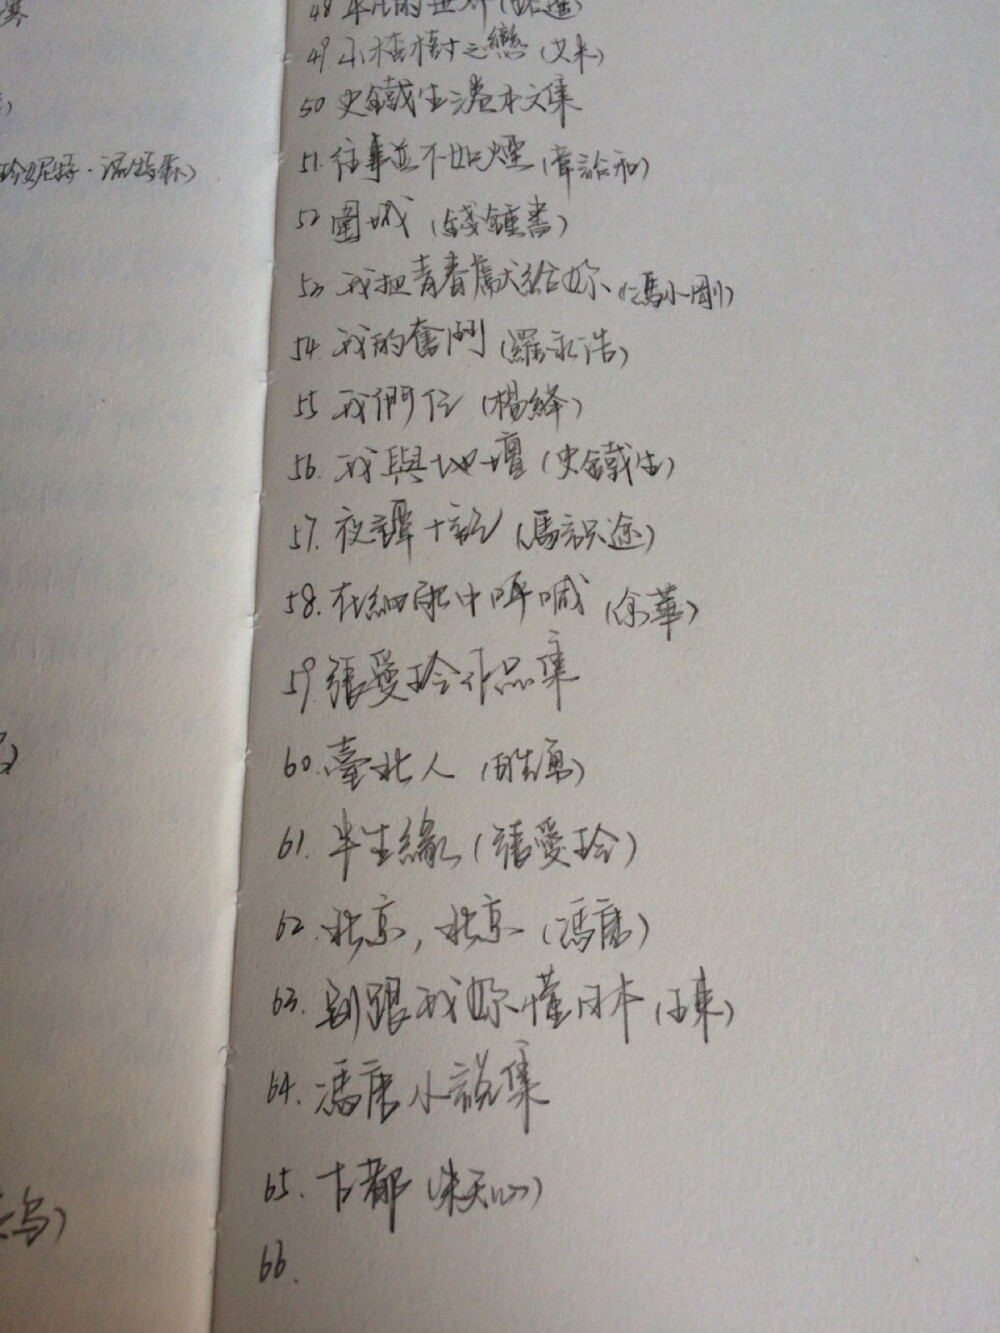 寒
珍妮特·溫特森)
48 平凡的世界(路遙)
49 山楂樹之戀(艾米)
50 史鐵生濃本文集
51. 往事並不如煙(章詒和)
52 圍城(錢鍾書)
53 我把青春獻給妳(馮小剛)
54. 我的奮鬥(羅永浩)
55 我們仨(楊絳)
56. 我與地壇(史鐵生)
57. 夜譚十記(馬識途)
58. 在細雨中呼喊(余華)
59 張愛玲作品集
60. 臺北人(白先勇)
61. 半生緣(張愛玲)
62. 北京,北京(馮唐)
63. 別跟我妳懂日本(王東)
64. 馮唐小說集
65. 古都(朱天心)
烏)
66.